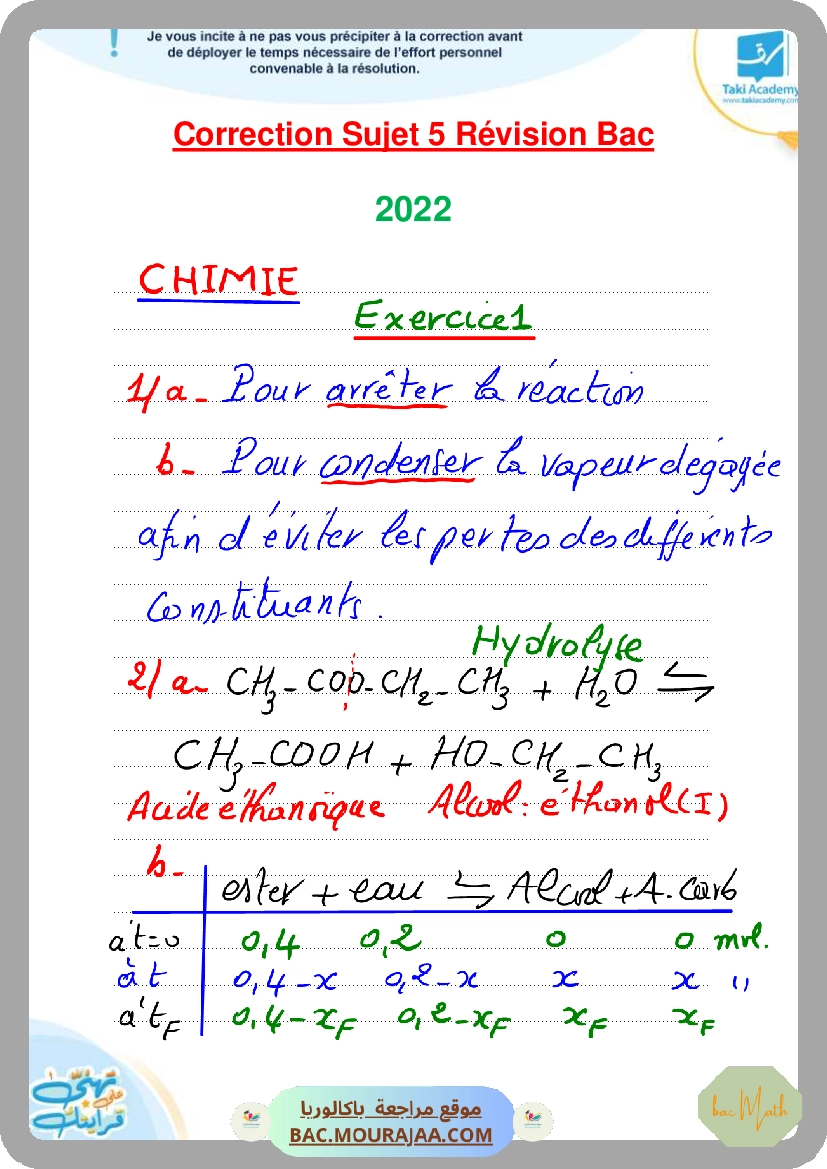 !
Je vous incite à ne pas vous précipiter à la correction avant
de déployer le temps nécessaire de l'effort personnel
convenable à la résolution.
Taki Academy
www.takiacademy.com
Correction Sujet 5 Révision Bac
2022
CHIMIE
Exercice1
1/a- Pour arrêter la réaction
b- Pour condenser la vapeur dégagée
afin d'éviter les pertes des différents
constituants.
Hydrolyse
2/a- CH₃-COO-CH₂-CH₃ + H₂O ⇌
CH₃-COOH + HO-CH₂-CH₃
Acide éthanoïque Alcool: éthanol(I)
b-
ester + eau ⇌ Alcool + A.carb
à t=0 0,4 0,2 0 0 mol.
à t 0,4-x 0,2-x x x "
à t_F 0,4-x_F 0,2-x_F x_F x_F
تهنّى
على
قرايتك
موقع مراجعة باكالوريا
BAC.MOURAJAA.COM
bac Math